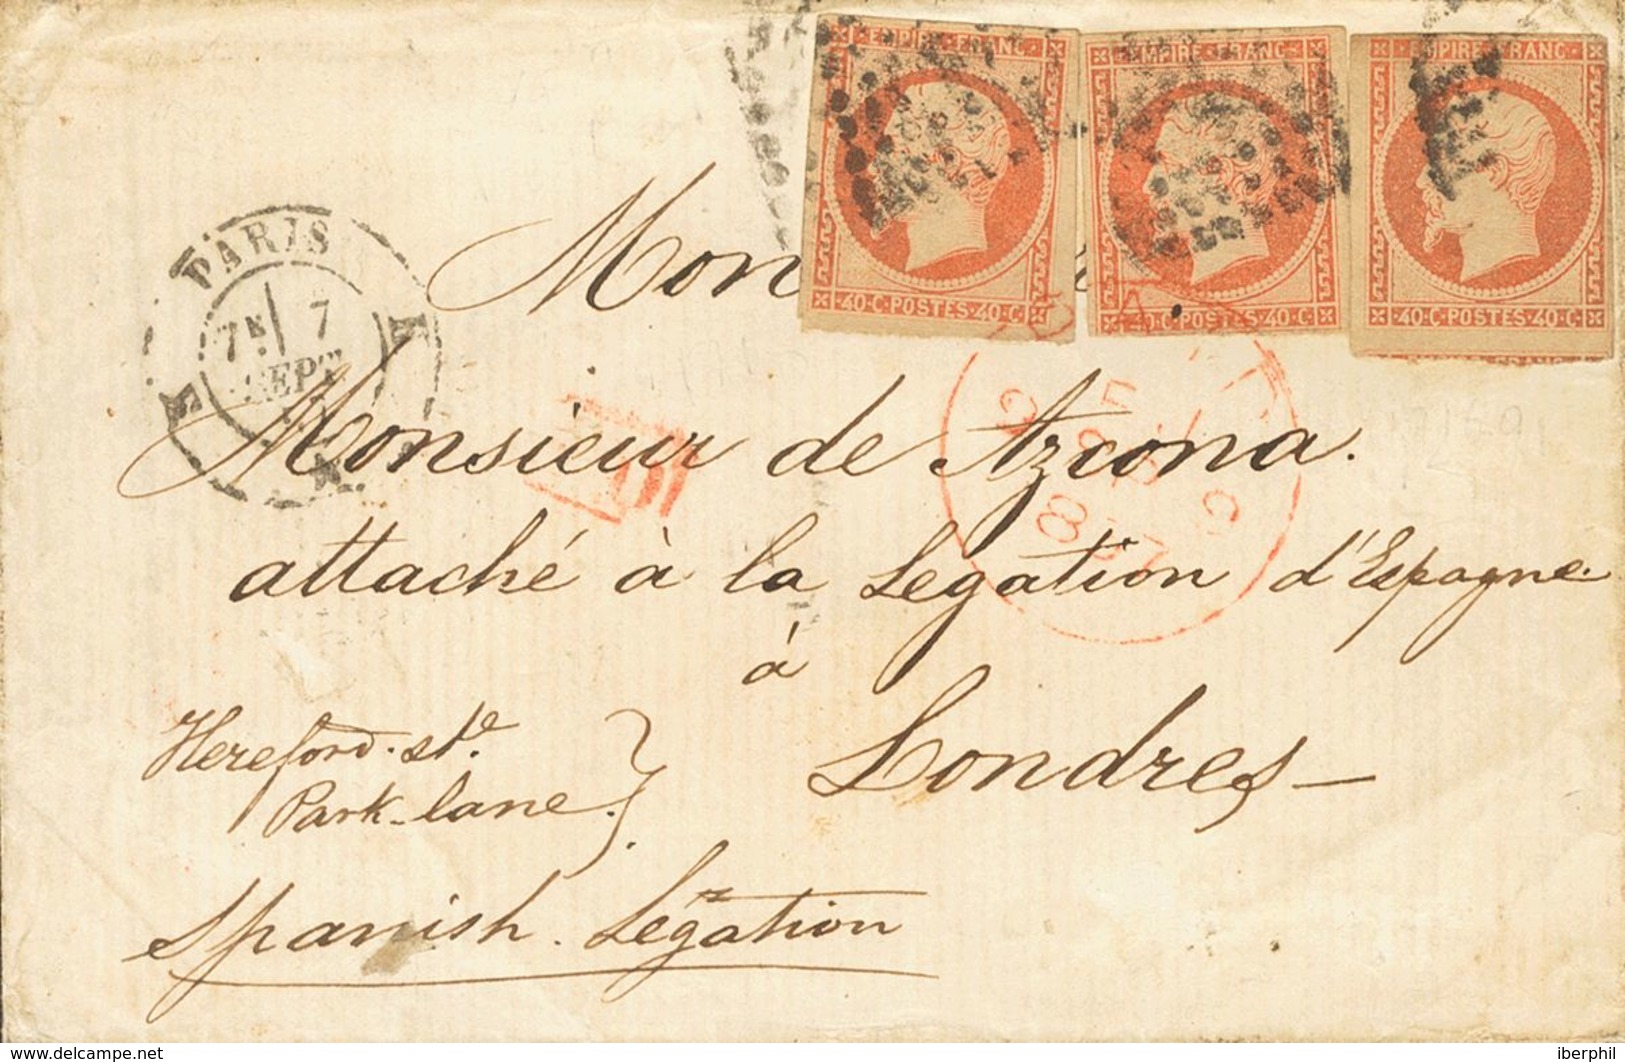 EMPIRE·FRANC
EMPIRE·FRANC
EMPIRE·FRANC
40·C·POSTES·40·C
40·C·POSTES·40·C
40·C·POSTES·40·C
PARIS
7
7
SEPT
PD
PAID
Mon
Monsieur de Azcona.
attaché à la Légation d'Espagne.
à
Londres
Hereford. st.
Park-lane.
Spanish. Légation
delcampe.net
iberphil